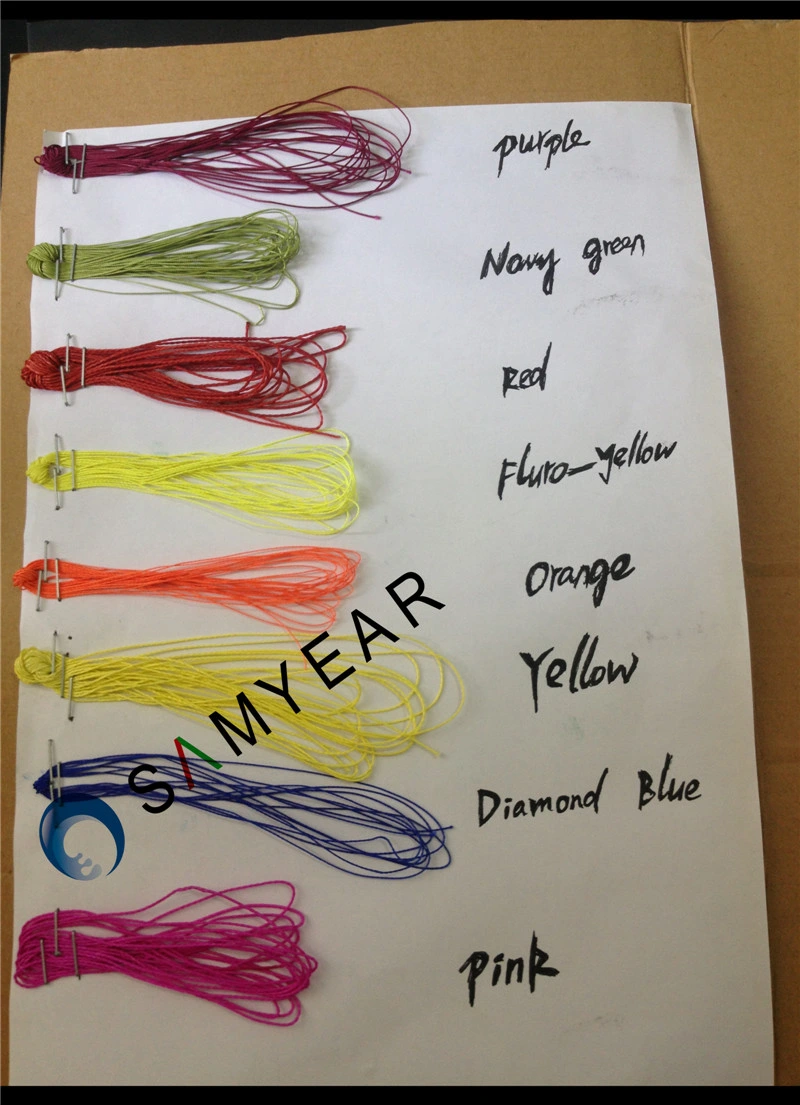 purple
Navy green
Red
Fluro-yellow
Orange
Yellow
SAMYEAR
Diamond Blue
pink